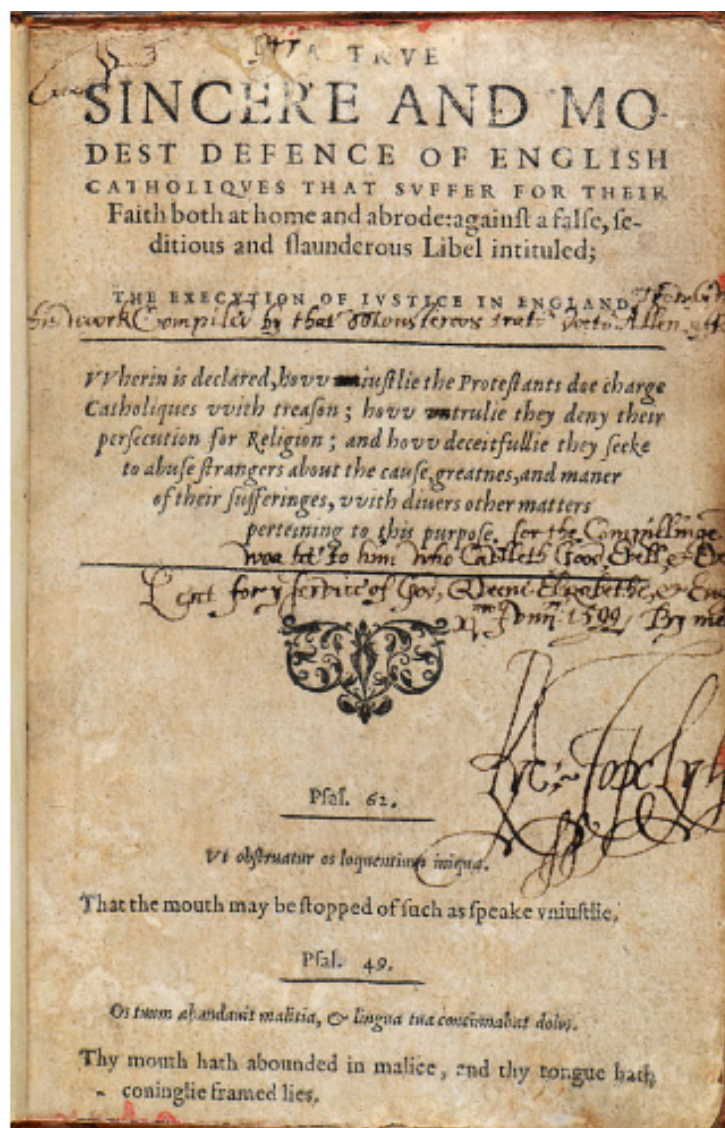 A TRVE
SINCERE AND MO-
DEST DEFENCE OF ENGLISH
CATHOLIQVES THAT SVFFER FOR THEIR
Faith both at home and abrode: againſt a falſe, ſe-
ditious and ſlaunderous Libel intituled;
THE EXECVTION OF IVSTICE IN ENGLAND.
work Compiled by that Allen
VVherin is declared, hovv iuſtlie the Proteſtants doe charge
Catholiques vvith treaſon; hovv trulie they deny their
perſecution for Religion; and hovv deceitfullie they ſeeke
to abuſe ſtrangers about the cauſe, greatnes, and maner
of their ſufferinges, vvith diuers other matters
perteining to this purpoſe. for the Compillinge
to him who Calleth Good, Evell &
for ſervice of God, Queene Elizabethe, &
1599 By me
Ryc: Topclyf
Pſal. 62.
Vt obſtruatur os loquentium iniqua.
That the mouth may be ſtopped of ſuch as ſpeake vniuſtlie.
Pſal. 49.
Os tuum abundauit malitia, & lingua tua concinnabat dolos.
Thy mouth hath abounded in malice, and thy tongue hath
coninglie framed lies.